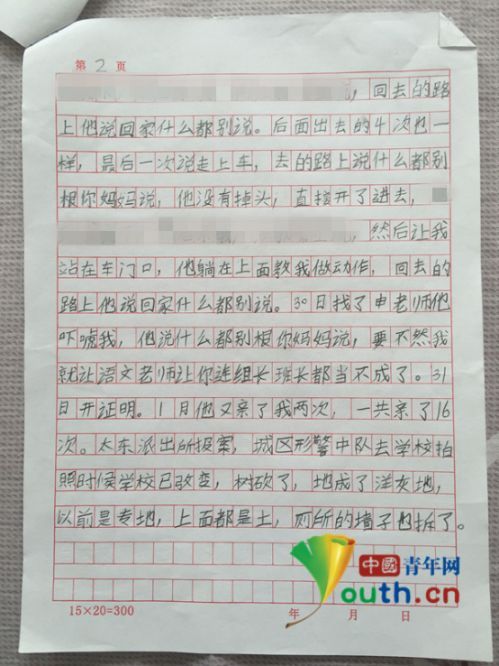 第2页
，回去的路
上他说回家什么都别说。后面出去的4次也一
样，最后一次说走上车，去的路上说什么都别
根你妈妈说，他没有掉头，直接开了进去，
，然后让我
站在车门口，他躺在上面教我做动作，回去的
路上他说回家什么都别说。30日找了申老师他
吓唬我，他说什么都别根你妈妈说，要不然我
就让语文老师让你连组长班长都当不成了。31
日开证明。1月他又亲了我两次，一共亲了16
次。太东派出所报案，城区形警中队去学校拍
照时候学校已改变，树砍了，地成了洋灰地，
以前是专地，上面都是土，厕所的墙子也拆了。
中國青年网
Youth.cn
15×20=300 年 月 日